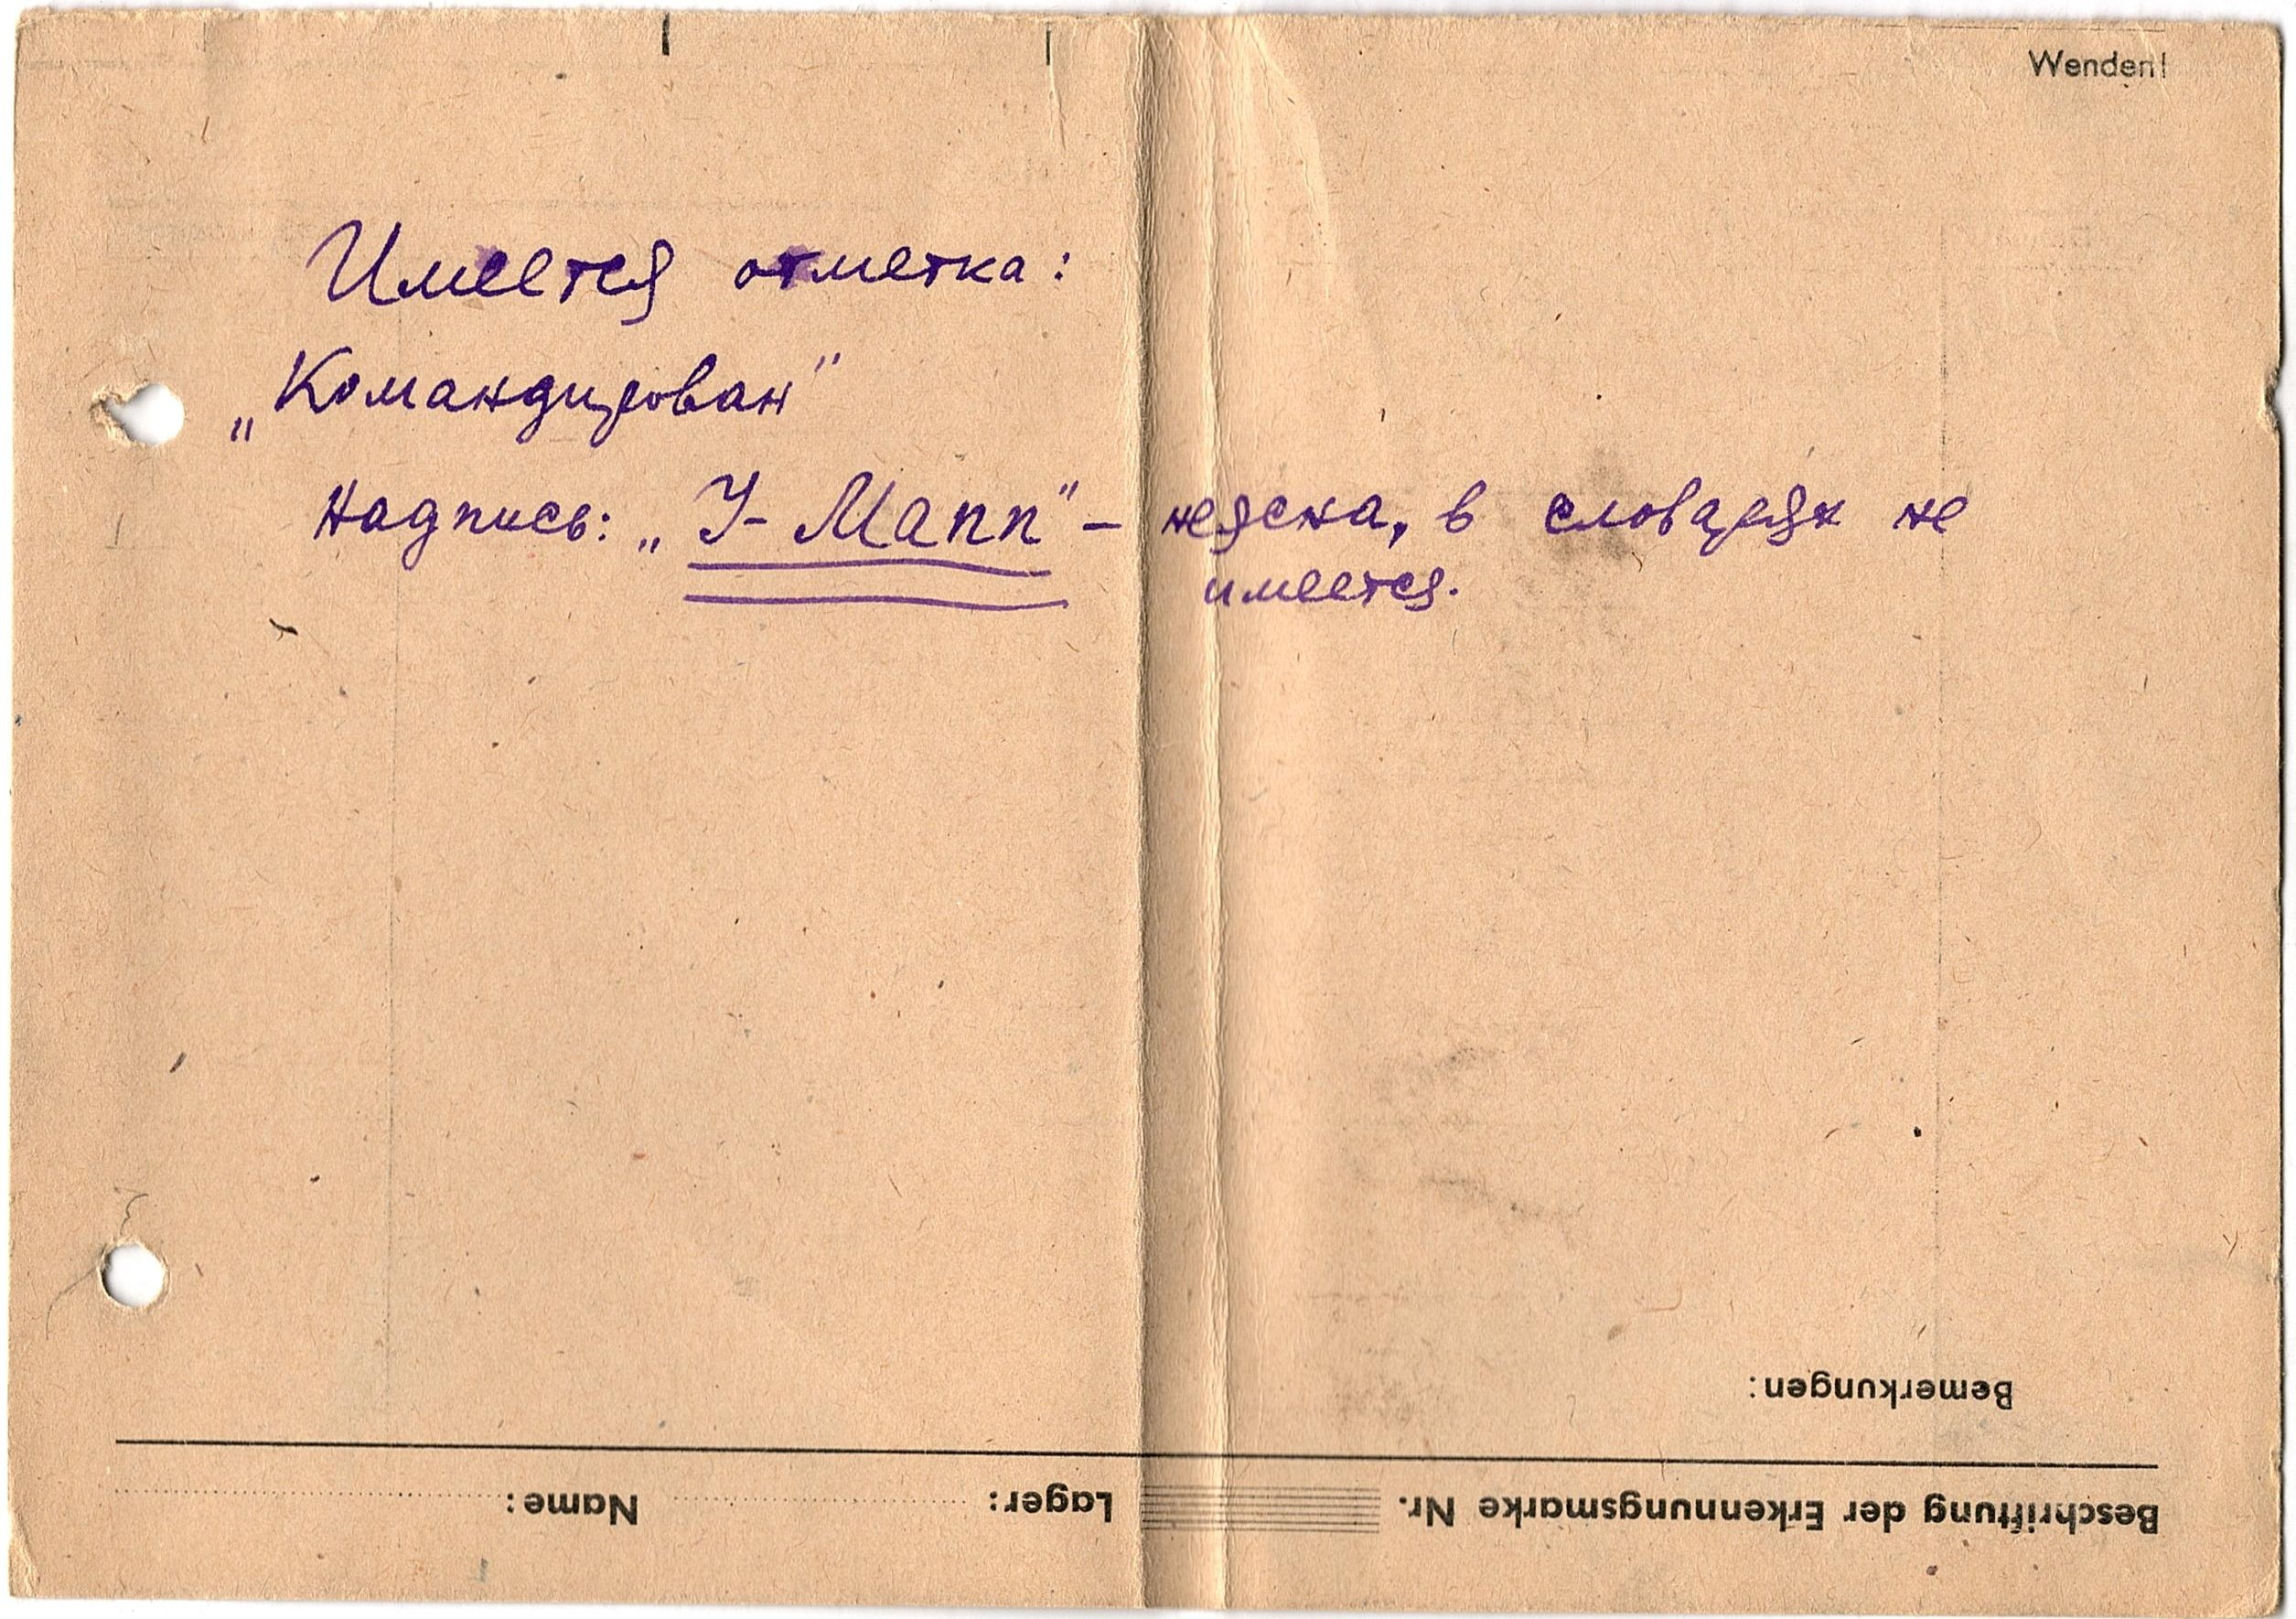 Wenden!
Имеется отметка:
„Командирован"
Надпись: „J-Mann" – неясна, в словарях не
имеется.
Bemerkungen:
Beschriftung der Erkennungsmarke Nr. Lager: Name: